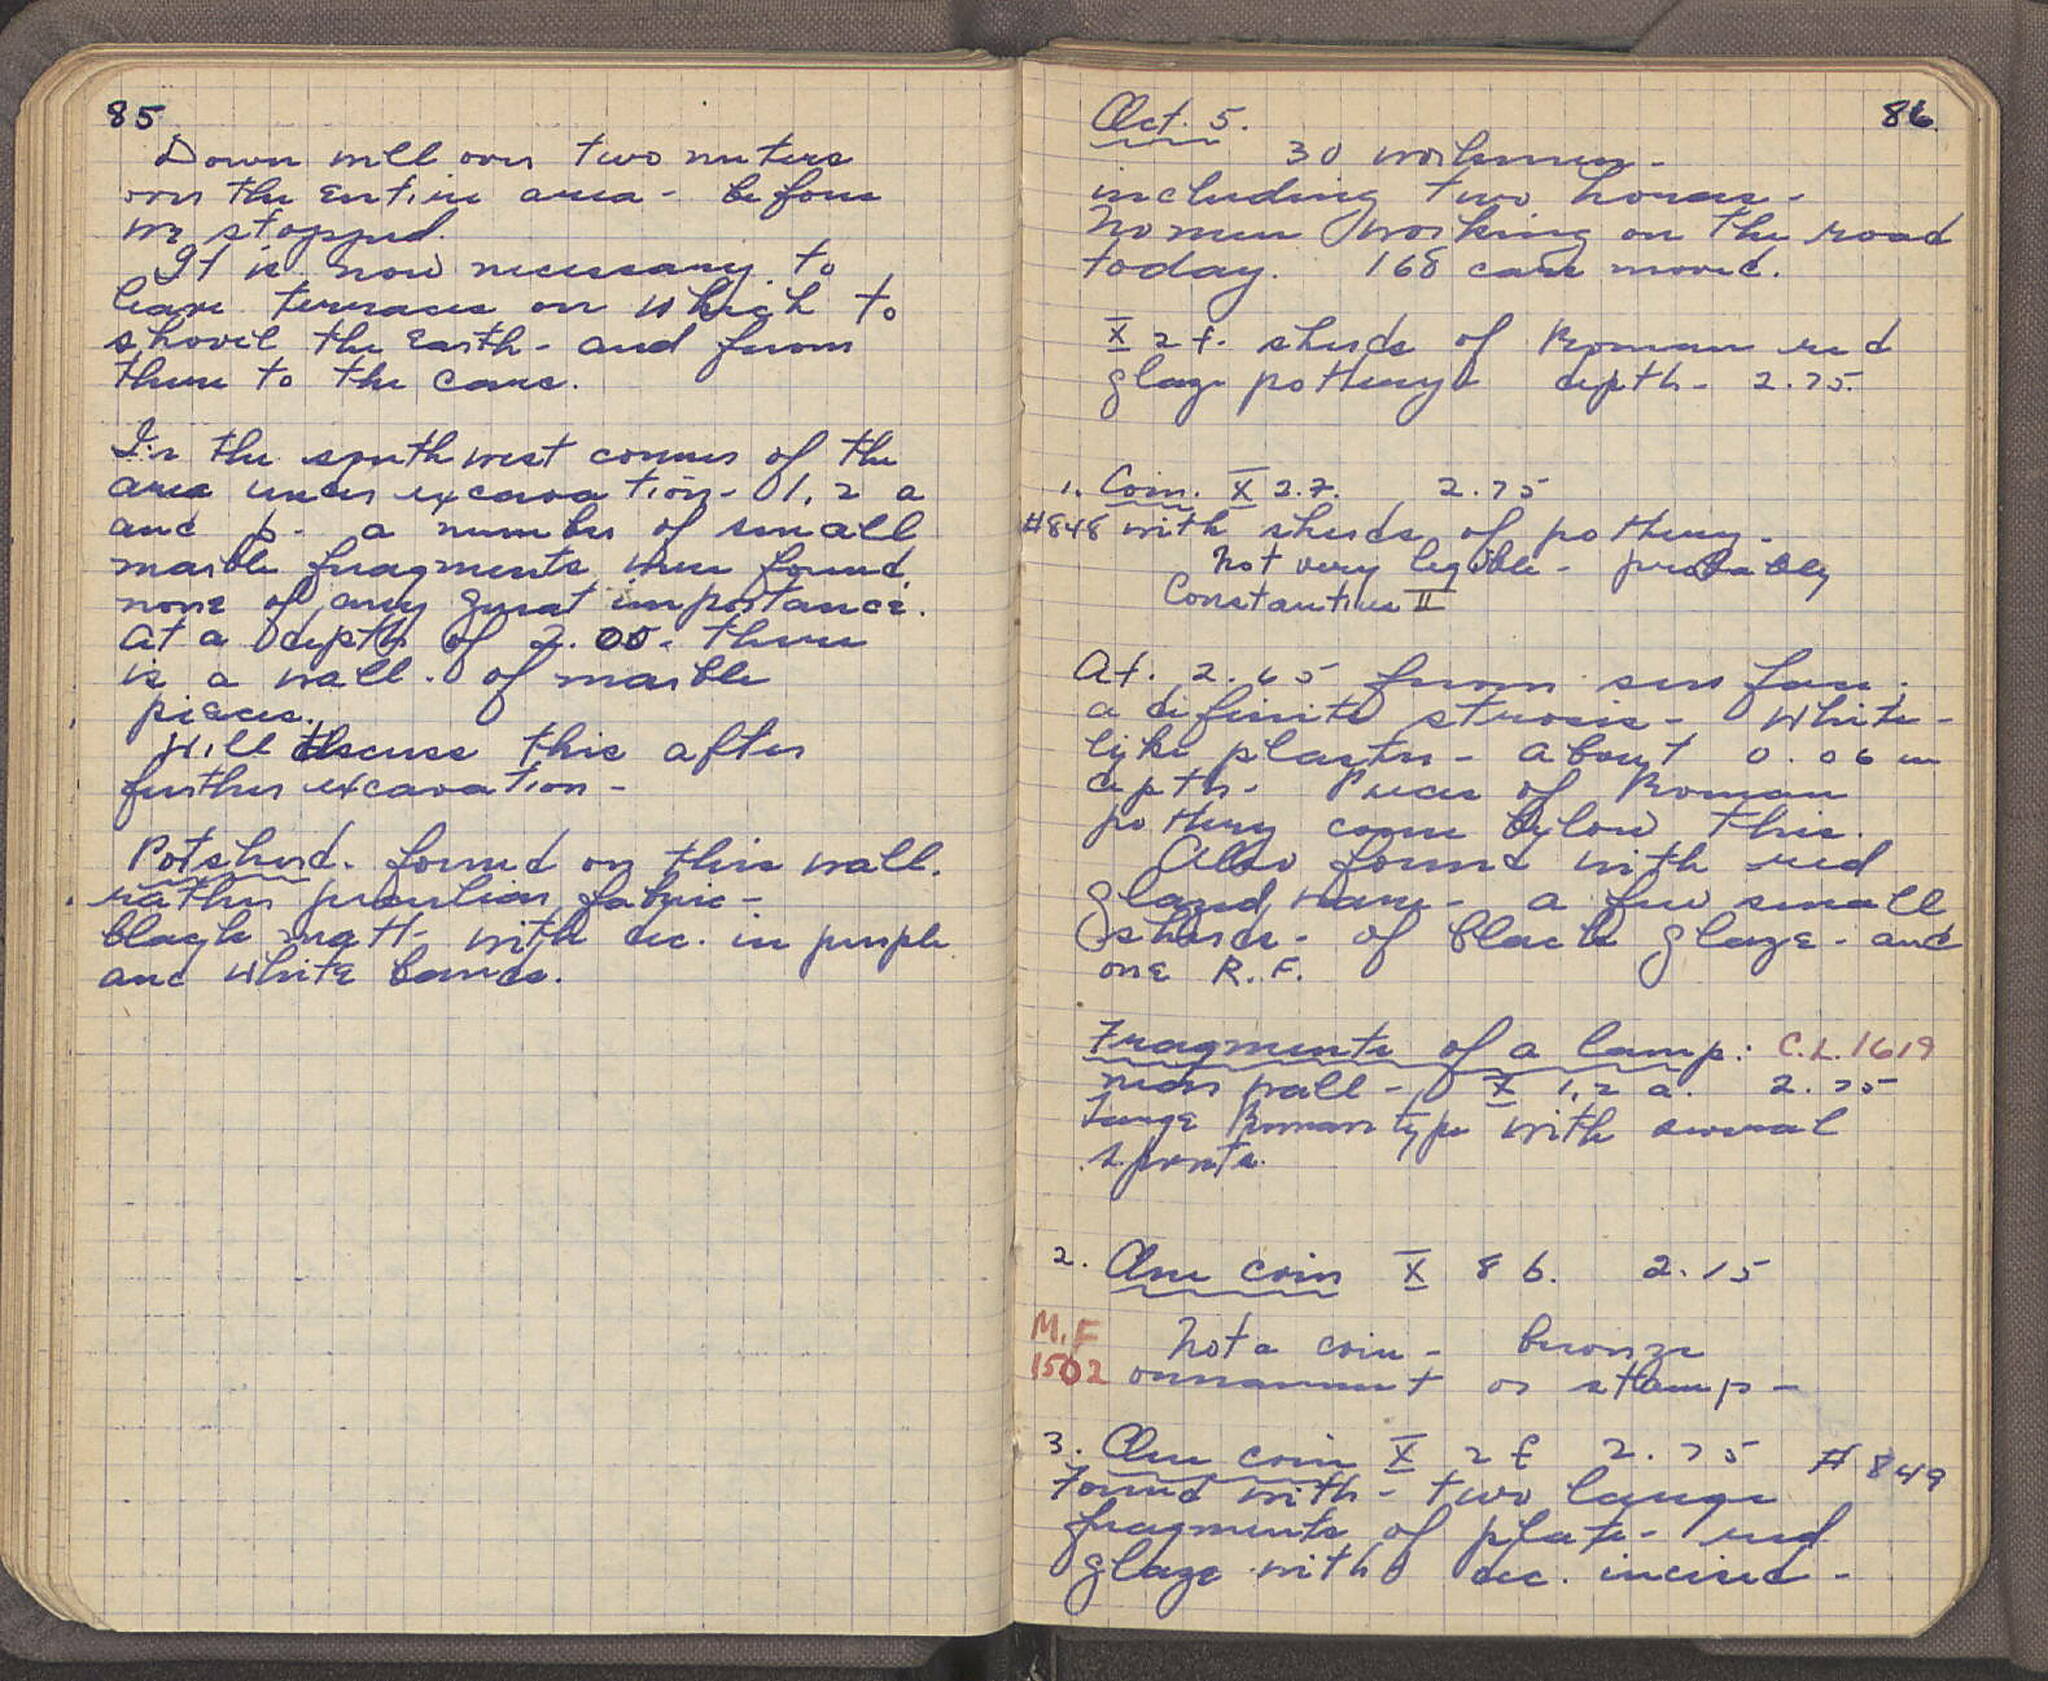 85
Down well over two meters
over the entire area - before
we stopped.
It is now necessary to
leave terraces on which to
shovel the earth - and from
there to the cars.
In the southwest corner of the
area under excavation - 1, 2 a
and b - a number of small
marble fragments were found.
none of any great importance.
At a depth of 2.00. there
is a wall. of marble
pieces.
Will discuss this after
further excavation -
Potsherd. found on this wall.
rather peculiar fabric -
black matt - with dec. in purple
and white bands.
86
Oct. 5.
30 workmen -
including two horses -
No men working on the road
today. 168 cars moved.
X 2 f. sherds of Roman red
glaze pottery - depth - 2.75.
1. Coin. X 2.7. 2.75
#848 with sherds of pottery -
Not very legible - probably
Constantius II
At. 2.65 from surface;
a definite strosis - white -
like plaster - about 0.06 m
depth. Pieces of Roman
pottery come below this.
Also found with red
glazed ware - a few small
sherds - of black glaze - and
one R.F.
Fragments of a lamp: C.L.1619
near wall - X 1, 2 a. 2.75
Large Roman type with several
spouts.
2. One coin X 8 b. 2.15
M.F
1502
Not a coin - bronze
ornament or stamp -
3. One coin X 2 f 2.75 #849
Found with - two large
fragments of plate - red
glaze with dec. incised -